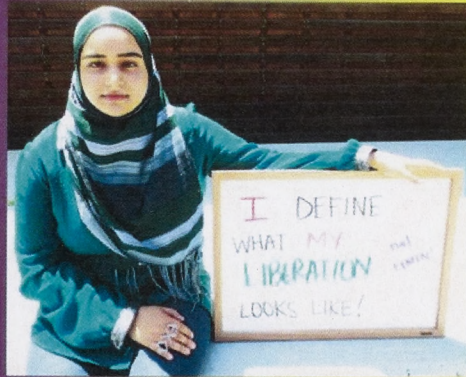 I DEFINE
WHAT MY
LIBERATION
LOOKS LIKE!